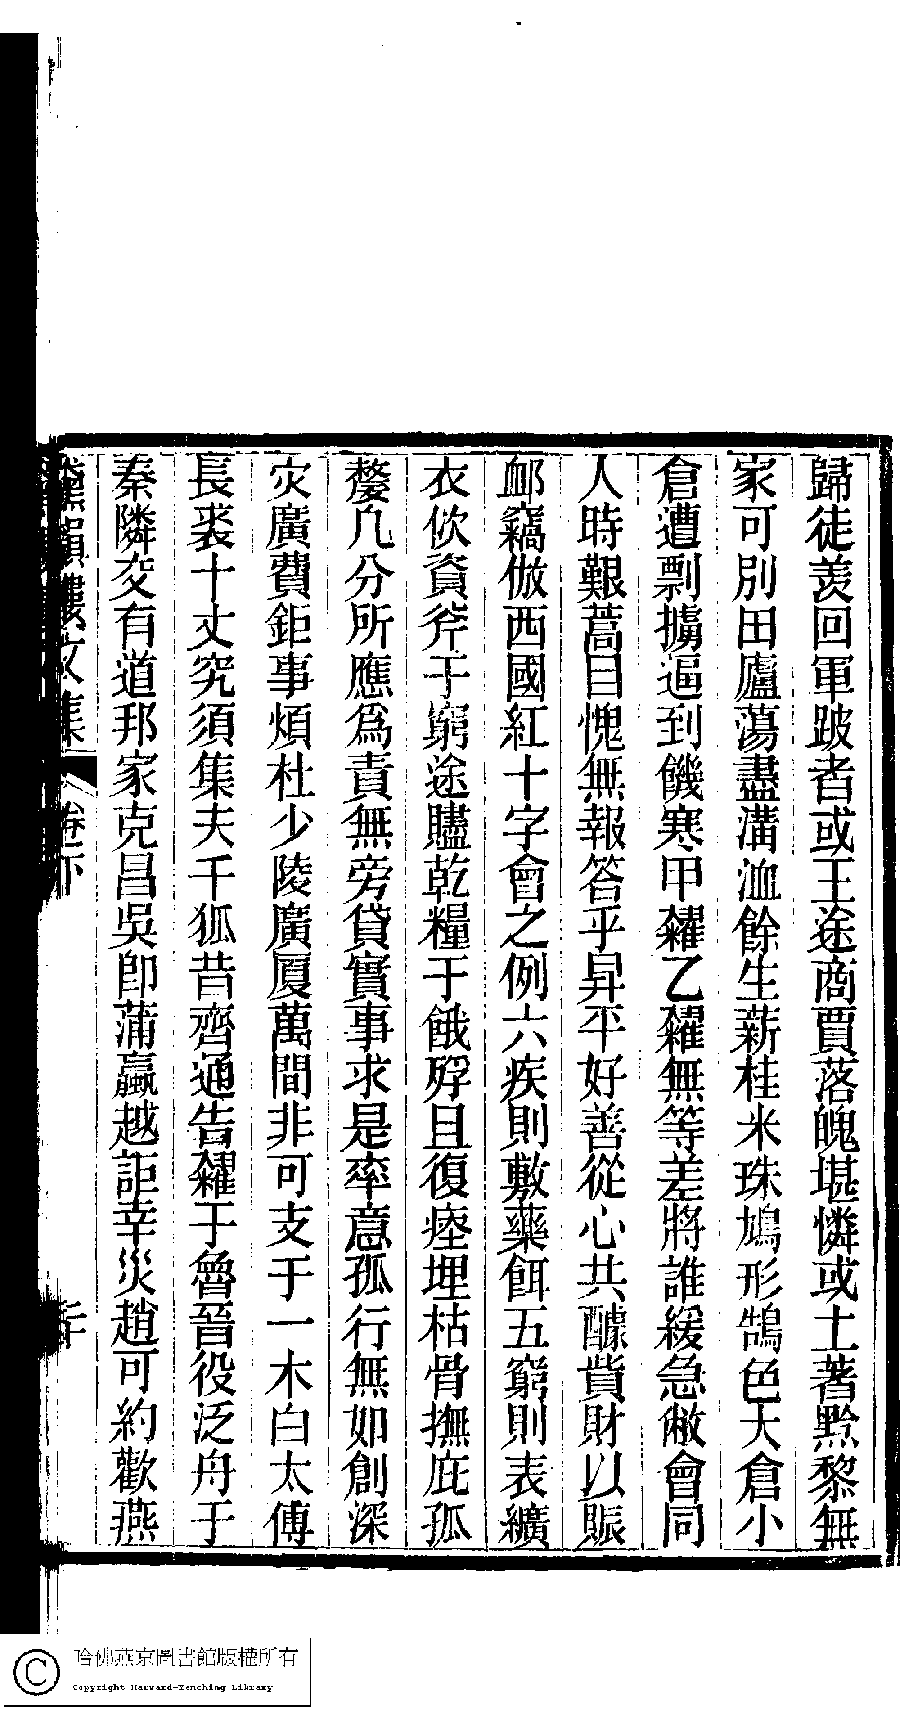 歸徒羨回軍跛者或王途商賈落魄堪憐或土著黔黎無
家可別田廬蕩盡溝洫餘生薪桂米珠鳩形鵠色大倉小
倉遭剽擄逼到饑寒甲糴乙糴無等差將誰緩急敝會同
人時艱蒿目愧無報答乎昇平好善從心共醵貲財以賑
卹竊倣西國紅十字會之例六疾則敷藥餌五窮則表纊
衣佽資斧于窮途贐乾糧于餓殍且復瘞埋枯骨撫庇孤
嫠几分所應爲責無旁貸實事求是率意孤行無如創深
灾廣費鉅事煩杜少陵廣厦萬間非可支于一木白太傅
長裘十丈究須集夫千狐昔齊通告糴于魯晉役泛舟于
秦隣交有道邦家克昌吳卽蒲蠃越詎幸災趙可約歡燕
文集 卷下
哈佛燕京圖書館版權所有
Copyright Harvard-Yenching Library